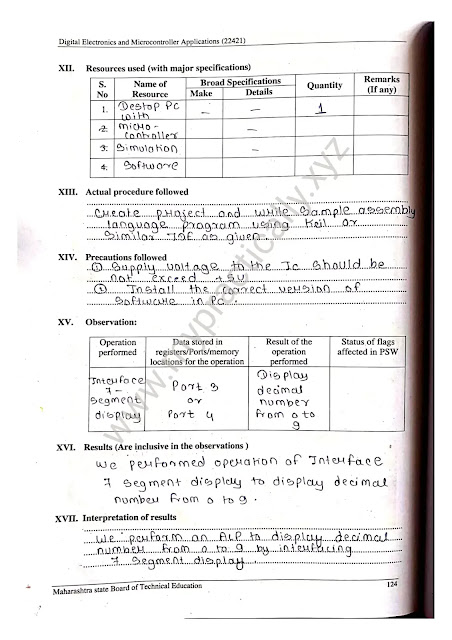 Digital Electronics and Microcontroller Applications (22421)
XII. Resources used (with major specifications)
S. No Name of Resource Broad Specifications Quantity Remarks (If any)
Make Details
1. Destop PC with – – 1
2. micro-controller –
3. Simulation –
4. Software
XIII. Actual procedure followed
Create project and write sample assembly
language program using Keil or
similar IDE as given.
XIV. Precautions followed
① Supply voltage to the Ic should be
not exceed +5V
② Install the correct version of
software in PC
XV. Observation:
Operation performed Data stored in registers/Ports/memory locations for the operation Result of the operation performed Status of flags affected in PSW
Interface 7-segment display Port 3 or Port 4 Display decimal number from 0 to 9
XVI. Results (Are inclusive in the observations )
we performed operation of Interface
7 segment display to display decimal
number from 0 to 9.
XVII. Interpretation of results
We perform an ALP to display decimal
number from 0 to 9 by interfacing
7 segment display.
Maharashtra state Board of Technical Education 124
www.mypractically.xyz